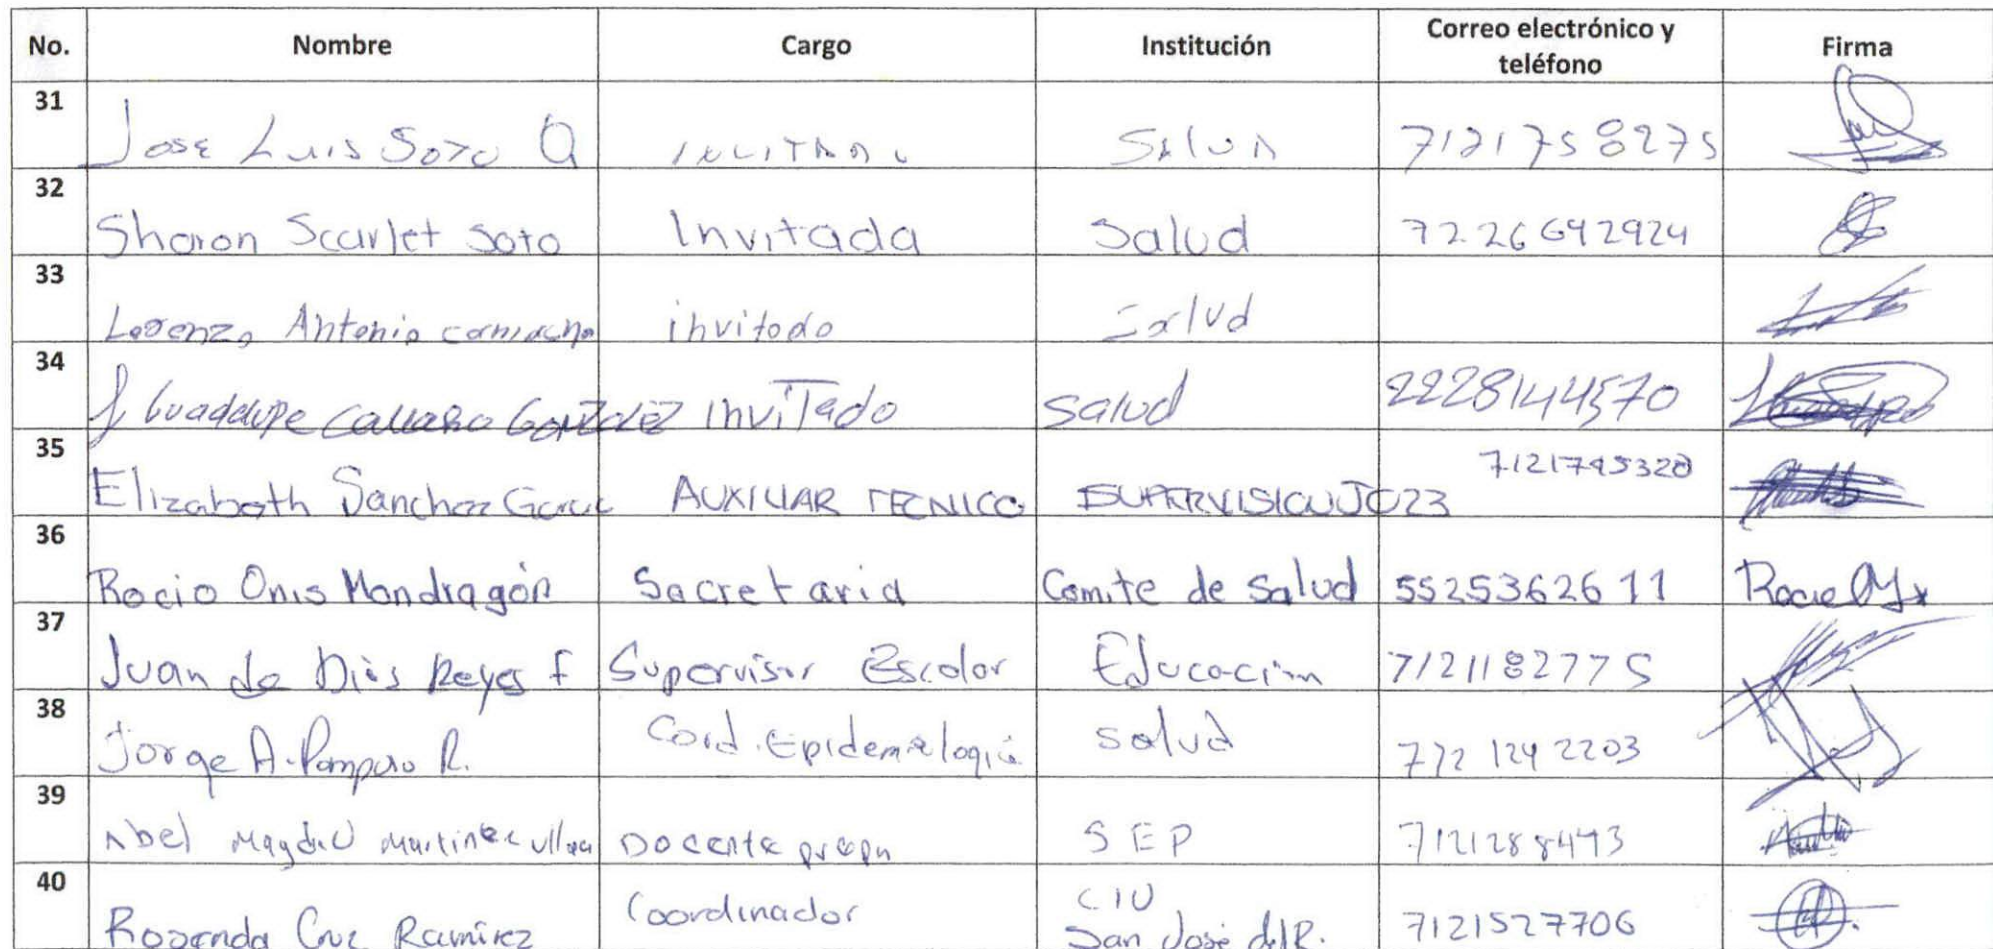 No. Nombre Cargo Institución Correo electrónico y teléfono Firma
31 Jose Luis Soto O Salud 7121758275
32 Sharon Scarlet Soto Invitada Salud 7226692924
33 Lorenzo Antonio camacho invitado Salud
34 J. Guadalupe González invitado Salud 2228144570
35 Elizabeth Sanchez Garcia AUXILIAR TECNICO SUPERVISION J023 7121795320
36 Rocio Onis Mondragón Secretaria Comite de Salud 5525362611 Rocio
37 Juan de Dios Reyes F Supervisor Escolar Educación 7121182775
38 Jorge A. R. Cord. Epidemiologia salud 712 124 2203
39 Abel Magdiel Martinez Docente SEP 7121288493
40 Rosendo Cruz Ramirez Coordinador CIU San José del R. 7121527706